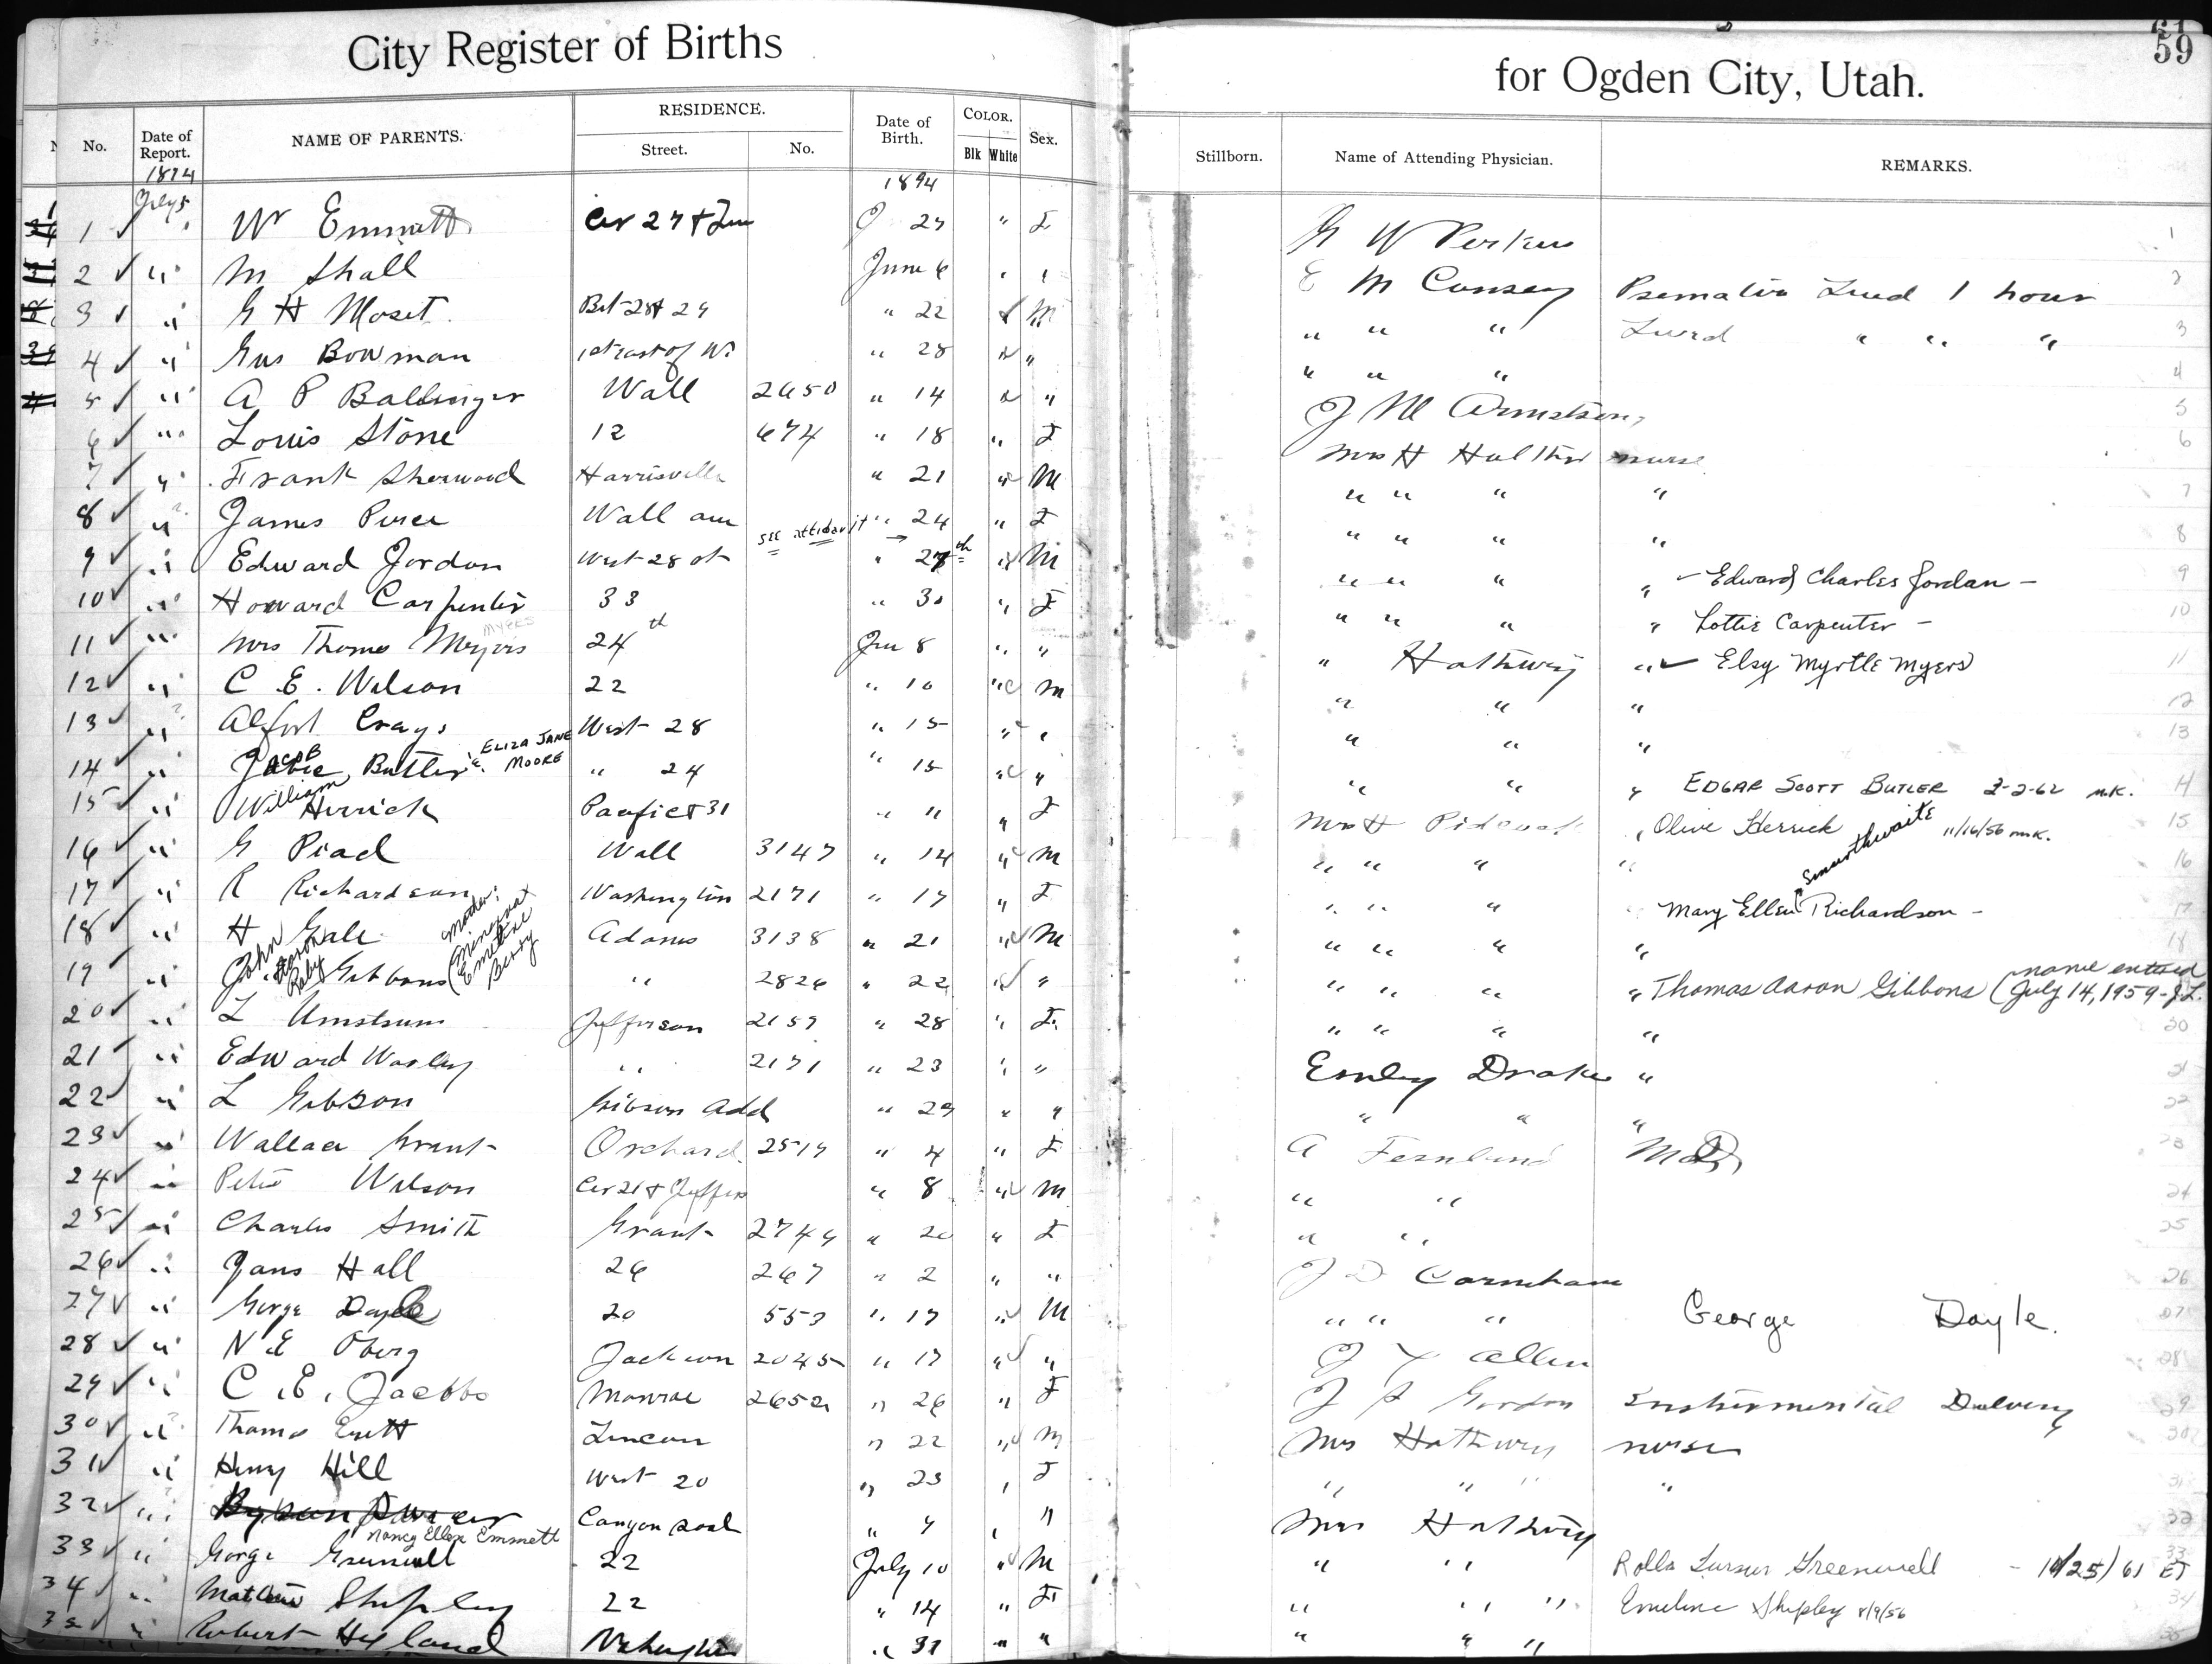 City Register of Births for Ogden City, Utah.
59
No. Date of Report. NAME OF PARENTS. RESIDENCE. Street. No. Date of Birth. COLOR. Blk White Sex. Stillborn. Name of Attending Physician. REMARKS.
1894 1894
July 5
1 Wm Emmett Cor 27 & 27 " F G W Perkins 1
2 " M Shall June 6 " " E M Conroy Lived 1 hour 2
3 " G H Moset Bet 28 & 29 " 22 M " " " Lived " " " 3
4 " Gus Bowman " 28 " " " " " 4
5 " A P Ballinger Wall 2650 " 14 " " J M Armstrong 5
6 " Louis Stone 12 674 " 18 " F Mrs H nurse 6
7 " Frank Sherwood Harrisville " 21 " M " " " " 7
8 " James Wall ave " 24 " F " " " " 8
see affidavit
9 " Edward Jordon West 28 st " 27th " M " " " " Edward Charles Jordan - 9
10 " Howard Carpenter 33 " 30 " F " " " " Lottie Carpenter - 10
11 " Mrs Thomas Meyers MYERS 24th Jun 8 " " " Hathway " Elsy Myrtle Myers 11
12 " C E. Wilson 22 " 10 " M " " " 12
13 " West 28 " 15 " " " " " 13
14 " Jacob Butler & ELIZA JANE MOORE " 24 " 15 " " " " " EDGAR SCOTT BUTLER 2-2-62 M.K. 14
15 " William Herrick Pacific & 31 " " " F Mrs H " Olive Herrick 11/16/56 M.K. 15
16 " G Wall 3147 " 14 " M " " " " 16
17 " R Richardson Washington 2171 " 17 " F " " " Mary Ellen Smurthwaite Richardson - 17
18 " H Gale Adams 3138 " 21 " M " " " " 18
19 " John Gibbons (mother: Emeline Berry " 2826 " 22 " " " " " " Thomas Aaron Gibbons (name entered July 14, 1959 - J.L. 19
20 " L Jefferson 2159 " 28 " F. " " " " 20
21 " Edward " 2171 " 23 " " Emley Drake " 21
22 " L Gibson Gibson Add " 29 " " " " " 22
23 " Wallace Grant Orchard 2519 " 4 " F A Fernlund MD 23
24 " Peter Wilson Cor 21 & Jeffers " 8 " M " " 24
25 " Charles Smith Grant 2749 " 20 " F " " 25
26 " Hall 26 267 " 2 " " J D Carnahan 26
27 " George Doyle 20 553 " 17 " M " " " George Doyle. 27
28 " N E Oberg Jackson 2045 " 17 " " Allen 28
29 " C. E. Jacobs Monroe 2652 " 26 " F J S Gordon Instermental Delvery 29
30 " Thomas Lincoln " 22 " M Mrs Hathwey nurse 30
31 " Henry Hill West 20 " 23 " F " " " " 31
32 " Canyon road " 4 " " Mrs Hathwey 32
Nancy Ellen Emmett
33 " George Greenwell 22 July 10 " M " " Rolla Greenwell - 10/25/61 ET 33
34 " Shipley 22 " 14 " F " " " Emeline Shipley 8/9/56 34
35 Robert Hyland " 31 " " " " " 35